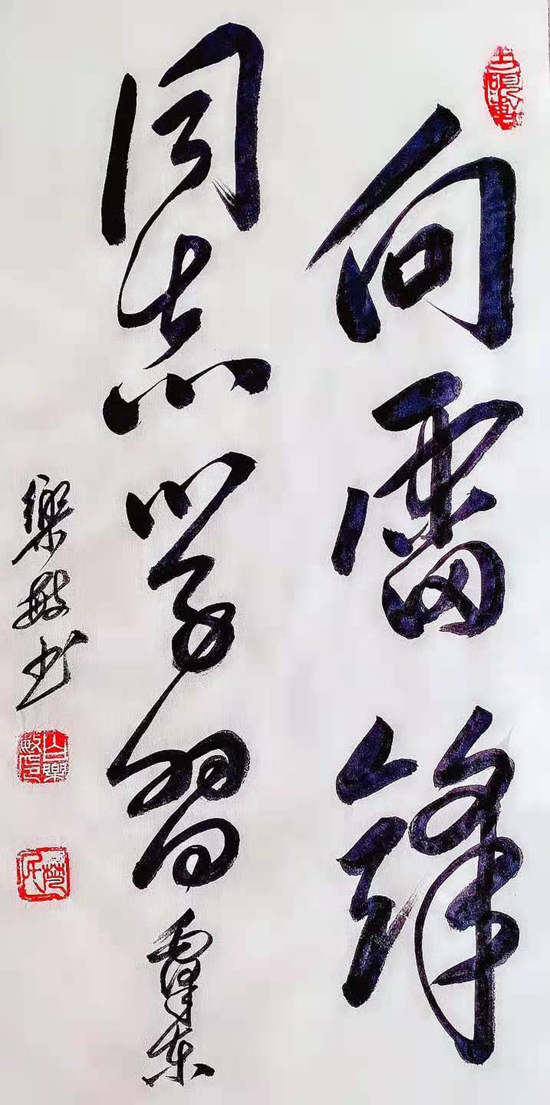 向雷锋
同志学习
毛泽东
樂敏书